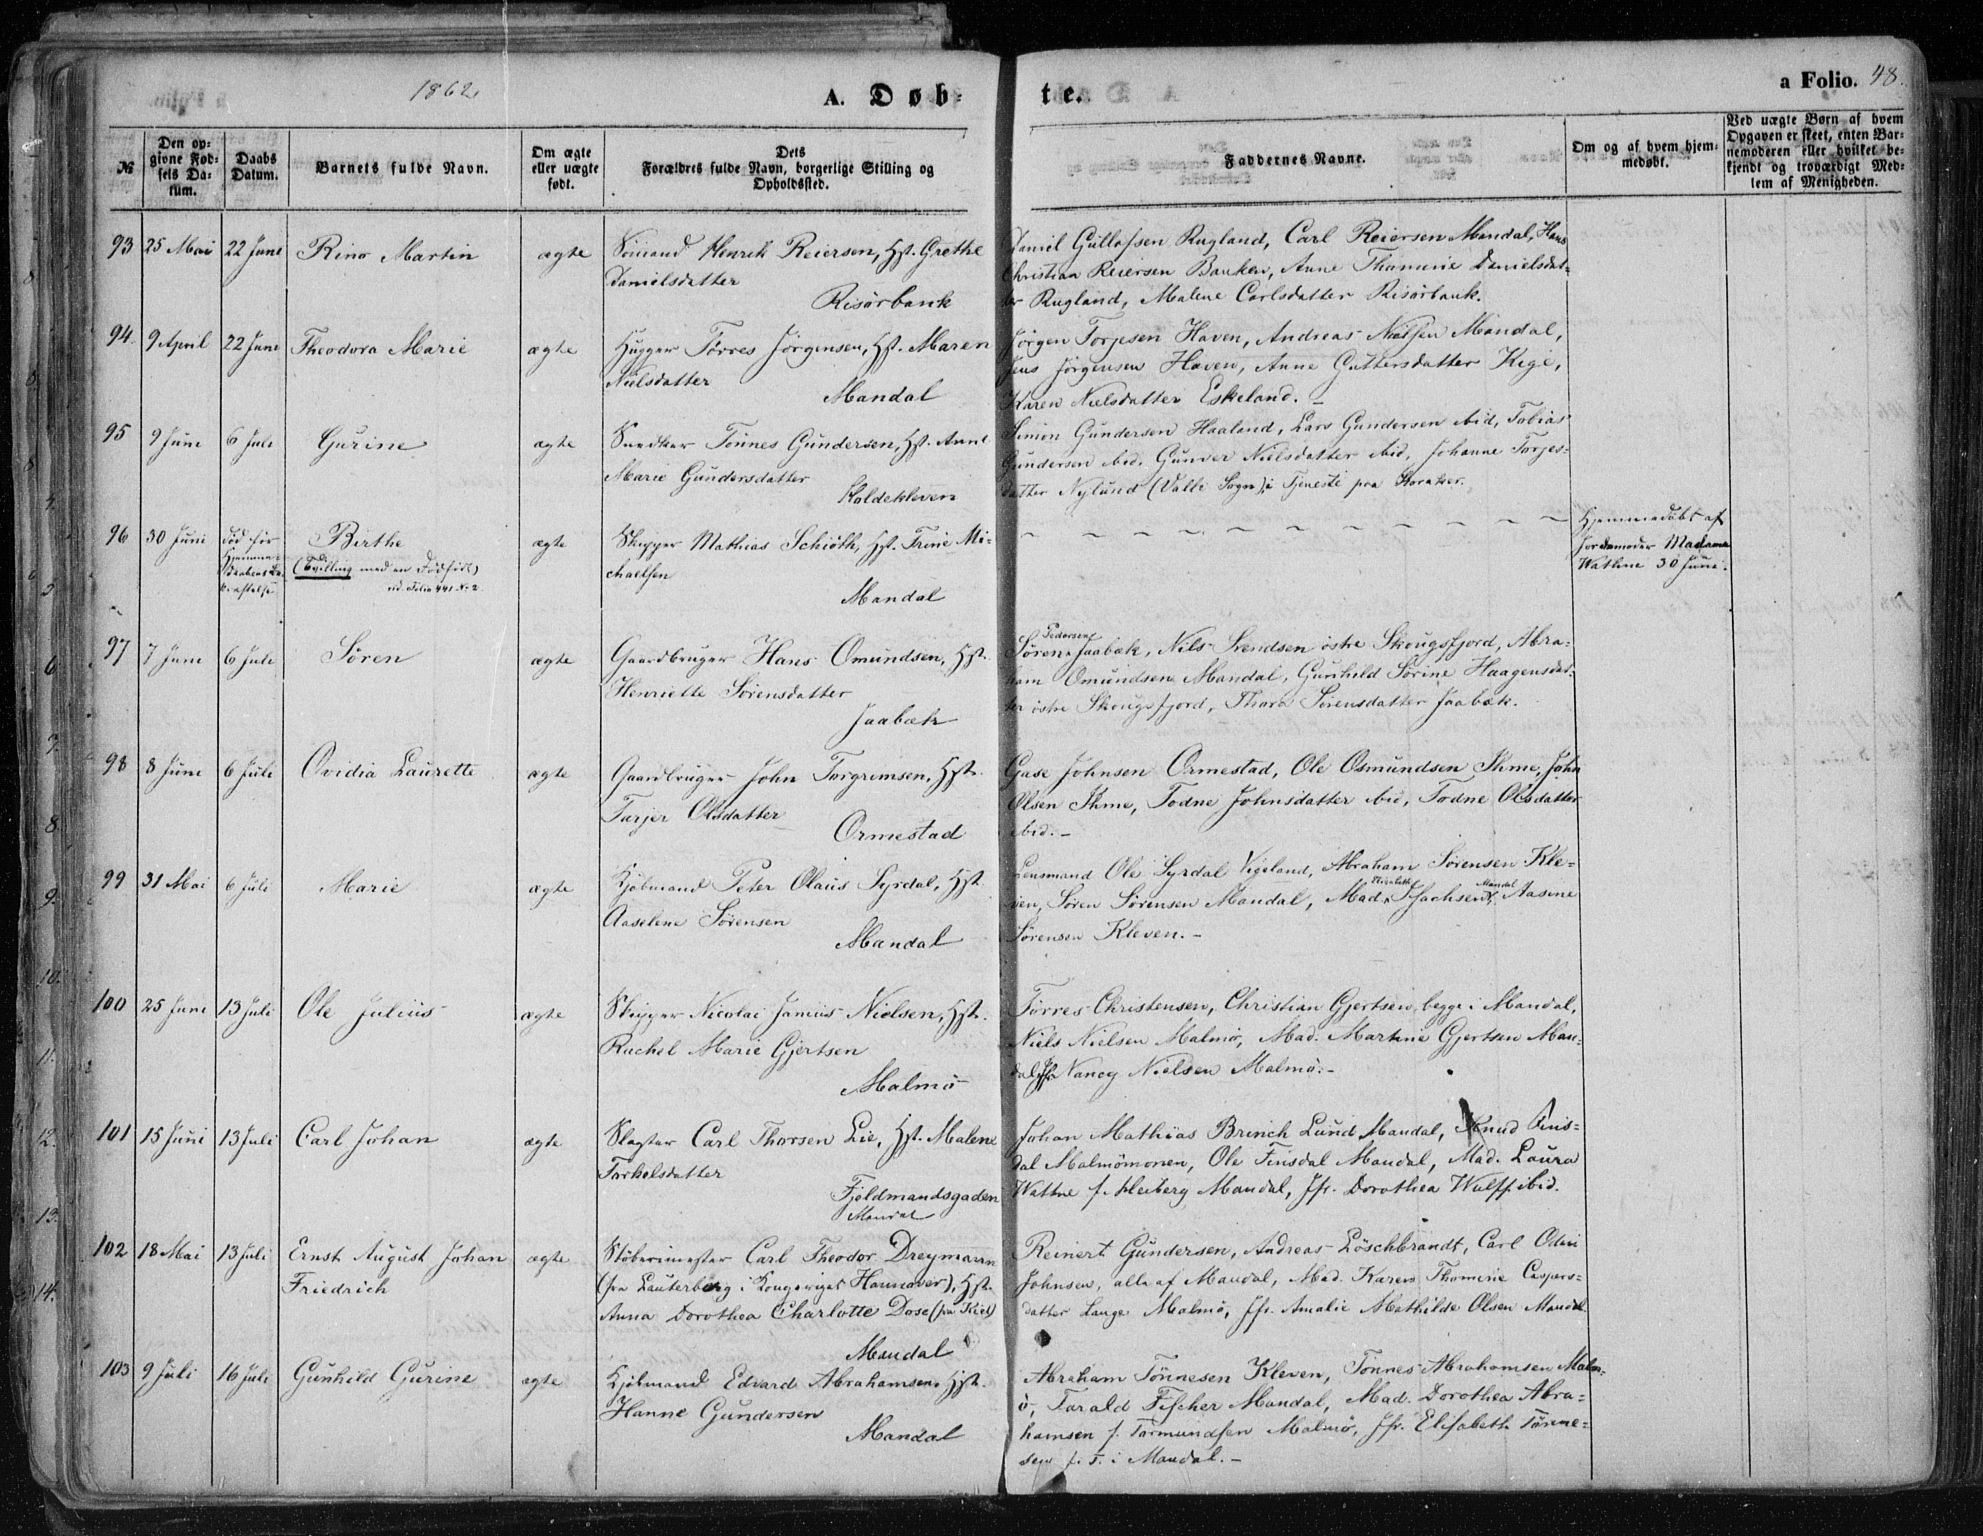 1862.
A. Døb-
te.
a Folio. 48.
№
Den op-
givne Fød-
sels Da-
tum.
Daabs
Datum.
Barnets fulde Navn.
Om ægte
eller uægte
født.
Dets
Forældres fulde Navn, borgerlige Stilling og
Opholdssted.
Faddernes Navne.
Om og af hvem hjem-
medøbt.
Ved uægte Børn af hvem
Opgaven er skeet, enten Bar-
nemoderen eller hvilket be-
kjendt og troværdigt Med-
lem af Menigheden.
93 25 Mai 22 Juni Rino Martin ægte Sömand Henrik Reiersen, Hst. Grethe
Danielsdatter
Risörbank
Daniel Gullofsen Rugland, Carl Reiersen Mandal, Hans
Christian Reiersen Banken, Anne Thomine Danielsdat-
ter Rugland, Malene Carlsdatter Risörbank.
94. 9 April 22 Juni Theodora Marie ægte Hugger Törres Jörgensen, Hst. Maren
Nielsdatter
Mandal
Jörgen Torjesen Haven, Andreas Nielsen Mandal,
Jens Jörgensen Haven, Anne Guttersdatter Kige,
Karen Nielsdatter Eskeland. –
95 9 Juni 6 Juli Gurine ægte Snedker Tönnes Gundersen, Hst. Anne
Marie Gundersdatter
Koldekleven
Simon Gundersen Haaland, Lars Gundersen ibid, Tobias
Gundersen ibid. Gunver Nielsdatter ibid, Johanne Torjes-
datter Nylund (Valle Sogn), i Tjeneste paa Storaker.
96 30 Juni Död för
Hjemme-
daabens Be-
kræftelse
Birthe
(Tvilling med en Dödfödt)
vid. Folio 441 № 2
ægte Skipper Mathias Schiöth, Hst. Trine Mi-
chaelsen
Mandal
Hjemmedöbt af
Jordemoder Madame
Wathne 30 Juni.
97 7 Juni 6 Juli Sören ægte Gaardbruger Hans Omundsen, Hst.
Henriette Sörensdatter
Jaabæk
Pedersen
Sören Jaabæk, Nils Svendsen östre Skougsfjord, Abra-
ham Omundsen Mandal, Gunhild Sörine Haagensdat-
ter östre Skougsfjord, Thora Sörensdatter Jaabæk.
98 8 Juni 6 Juli Ovidia Laurette ægte Gaardbruger John Torgremsen, Hst.
Tarjer Olsdatter
Ormestad
Gase Johnsen Ormestad, Ole Osmundsen Ihme, John
Olsen Ihme, Todne Johnsdatter ibid, Todne Olsdatter
ibid. –
99 31 Mai 6 Juli Marie ægte Kjöbmand Peter Olaus Syrdal, Hst.
Aaselene Sörensen
Mandal
Lensmand Ole Syrdal Vigeland, Abraham Sörensen Kle-
Elisabeth Mandal
ven, Sören Sörensen Mandal, Mad. Isachsen, Aasine
Sörensen Kleven. –
100 25 Juni 13 Juli Ole Julius ægte Skipper Nicolai Janius Nielsen, Hst.
Rachel Marie Gjertsen
Malmö
Törres Christensen, Christian Gjertsen, begge i Mandal,
Niels Nielsen Malmö, Mad. Martine Gjertsen Man-
dal, Jfr. Nancy Nielsen Malmö. –
101 15 Juni 13 Juli Carl Johan ægte Slagter Carl Thorsen Lie, Hst. Malene
Torkelsdatter
Fjeldmandsgaden
Mandal
Johan Mathias Brinch Lund Mandal, Knud Fins-
dal Malmömonen, Ole Finsdal Mandal, Mad. Laura
Wattne f. Heiberg Mandal, Jfr. Dorothea Wulff ibid.
102 18 Mai 13 Juli Ernst August Johan
Friedrich
ægte Stöberimester Carl Theodor Dreymann
(fra Lauterberg i Kongeriget Hannover), Hst.
Anna Dorothea Charlotte Dose (fra Kiel)
Mandal
Reinert Gundersen, Andreas Löschbrandt, Carl Odin
Johnsen, alle af Mandal, Mad. Karen Thomine Caspers-
datter Lange Malmö, Jfr. Amalie Mathilde Olsen Mandal.
103 9 Juli 16 Juli Gunhild Gurine ægte Kjöbmand Edvard Abrahamsen, Hst.
Hanne Gundersen
Mandal
Abraham Tönnesen Kleven, Tönnes Abrahamsen Malm-
ö, Tarald Fischer Mandal, Mad. Dorothea Abra-
hamsen f. Tormundsen Malmö, Jfr. Elisabeth Tönne-
sen f. T. i Mandal. –